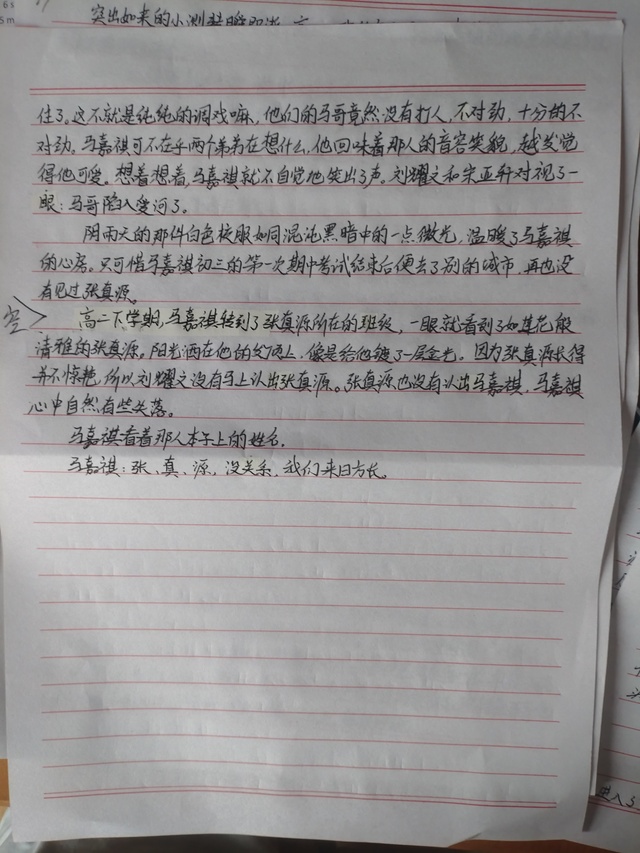 6s
5m
突出如来的小测转瞬即逝
住了。这不就是纯纯的调戏嘛,他们的马哥竟然没有打人,不对劲,十分的不
对劲。马嘉祺可不在乎两个弟弟在想什么,他回味着那人的音容笑貌,越发觉
得他可爱。想着想着,马嘉祺就不自觉地笑出了声。刘耀文和宋亚轩对视了一
眼:马哥陷入爱河了。
阴雨天的那件白色校服如同混沌黑暗中的一点微光,温暖了马嘉祺
的心房。只可惜马嘉祺初三的第一次期中考试结束后便去了别的城市,再也没
有见过张真源。
空>
高二下学期,马嘉祺转到了张真源所在的班级,一眼就看到了如莲花般
清雅的张真源。阳光洒在他的发顶上,像是给他镀了一层金光。因为张真源长得
并不惊艳,所以刘耀文没有马上认出张真源。张真源也没有认出马嘉祺,马嘉祺
心中自然有些失落。
马嘉祺看着那人本子上的姓名。
马嘉祺:张、真、源,没关系,我们来日方长。
进入5